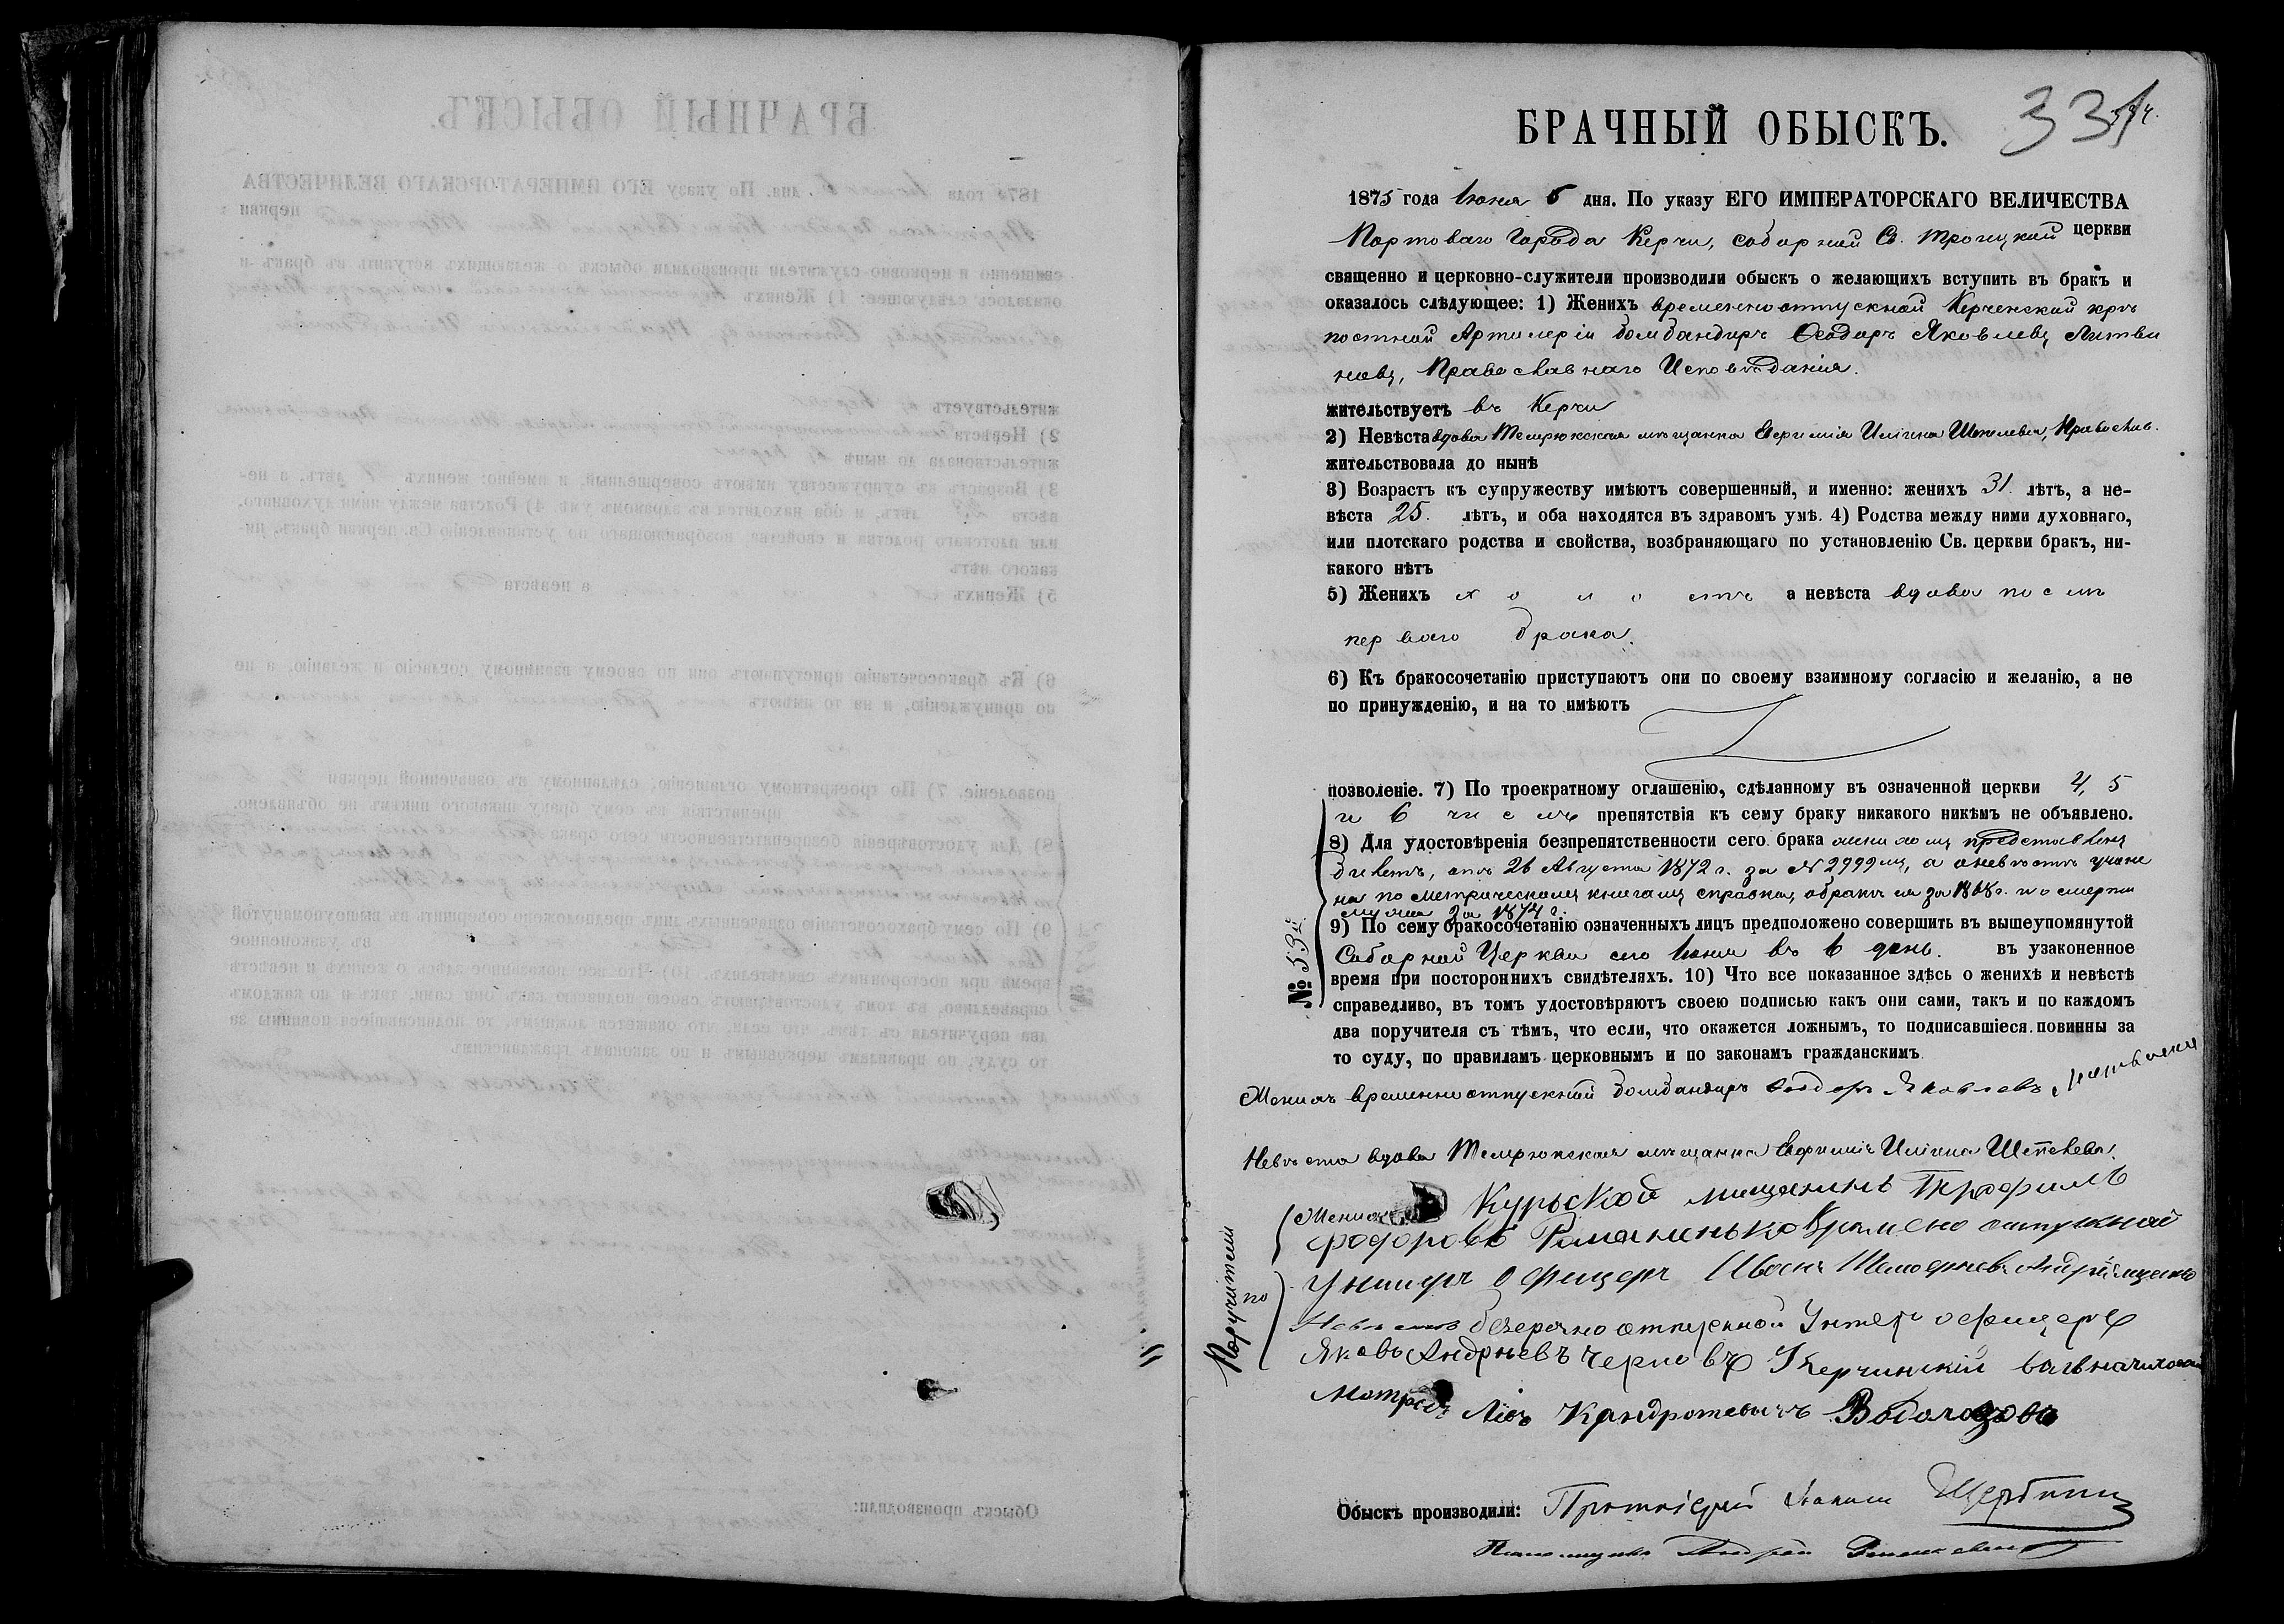 БРАЧНЫЙ ОБЫСКЪ.
331
1875 года Іюня 6 дня. По указу ЕГО ИМПЕРАТОРСКАГО ВЕЛИЧЕСТВА
Портоваго Города Керчи, соборной Св. Троицкой церкви
священно и церковно-служители производили обыскъ о желающихъ вступить въ бракъ и
оказалось слѣдующее: 1) Женихъ временноотпускной Керченской крѣ
постной Артилеріи бомбандиръ Ѳеодоръ Яковлевъ Литви
новъ, Православнаго Исповѣданія.
жительствуетъ въ Керчи
2) Невѣста вдова Темрюкская мѣщанка Евфимія Иліина Щепелева, Православ.
жительствовала до нынѣ
3) Возрастъ къ супружеству имѣютъ совершенный, и именно: женихъ 31 лѣтъ, а не-
вѣста 25. лѣтъ, и оба находятся въ здравомъ умѣ. 4) Родства между ними духовнаго,
или плотскаго родства и свойства, возбраняющаго по установленію Св. церкви бракъ, ни-
какого нѣтъ
5) Женихъ холостъ а невѣста вдова послѣ
перваго брака.
6) Къ бракосочетанію приступаютъ они по своему взаимному согласію и желанію, а не
по принужденію, и на то имѣютъ
позволеніе. 7) По троекратному оглашенію, сдѣланному въ означенной церкви 4, 5
и 6 числъ препятствія къ сему браку никакого никѣмъ не объявлено.
8) Для удостовѣренія безпрепятственности сего брака женихомъ представленъ
билетъ, отъ 26 Августа 1872 г. за № 2999мъ, а о невѣстѣ учине
на по метрическимъ книгамъ справка, о бракѣ ея за 1868 г. и о смерти
мужа за 1874 г.
9) По сему бракосочетанію означенныхъ лицъ предположено совершить въ вышеупомянутой
Соборной Церкви сего Іюня въ 6 день. въ узаконенное
время при постороннихъ свидѣтеляхъ. 10) Что все показанное здѣсь о женихѣ и невѣстѣ
справедливо, въ томъ удостовѣряютъ своею подписью какъ они сами, такъ и по каждомъ
два поручителя съ тѣмъ, что если, что окажется ложнымъ, то подписавшіеся повинны за
то суду, по правиламъ церковнымъ и по законамъ гражданскимъ
№ 53й
Женихъ временноотпускной бомбандиръ Ѳеодоръ Яковлевъ Литвиновъ
Невѣста вдова Темрюкская мѣщанка Евфимія Иліина Щепелева.
Поручители по
Женихѣ Курьской мищининъ Трофимъ
Федоровъ Романенько Времено отпускной
Унтеръ Офицеръ Иванъ
Невѣстѣ безсрочно отпускной Унтеръ офицеръ
Яковъ Андрѣевъ Черновъ Керчинскій
Матросъ Кандротевичъ
Обыскъ производили: Протоіерей Іоаннъ Щербина
Псаломщикъ Андрей